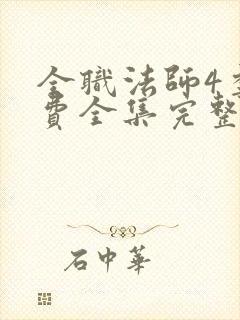 全職法師4
費全集完整
石中華